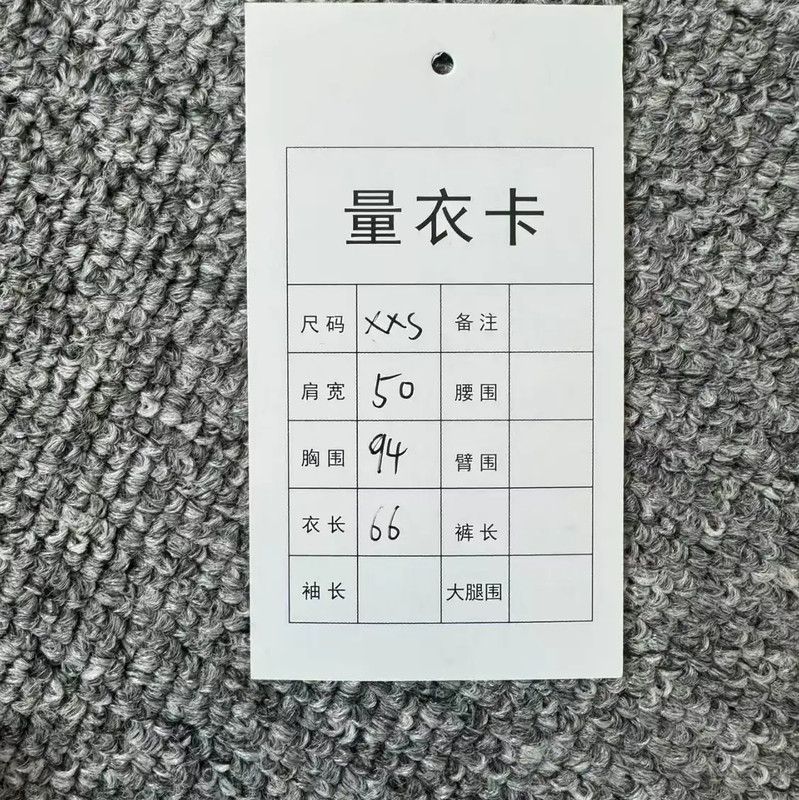 量衣卡
尺码 XXS 备注
肩宽 50 腰围
胸围 94 臂围
衣长 66 裤长
袖长 大腿围